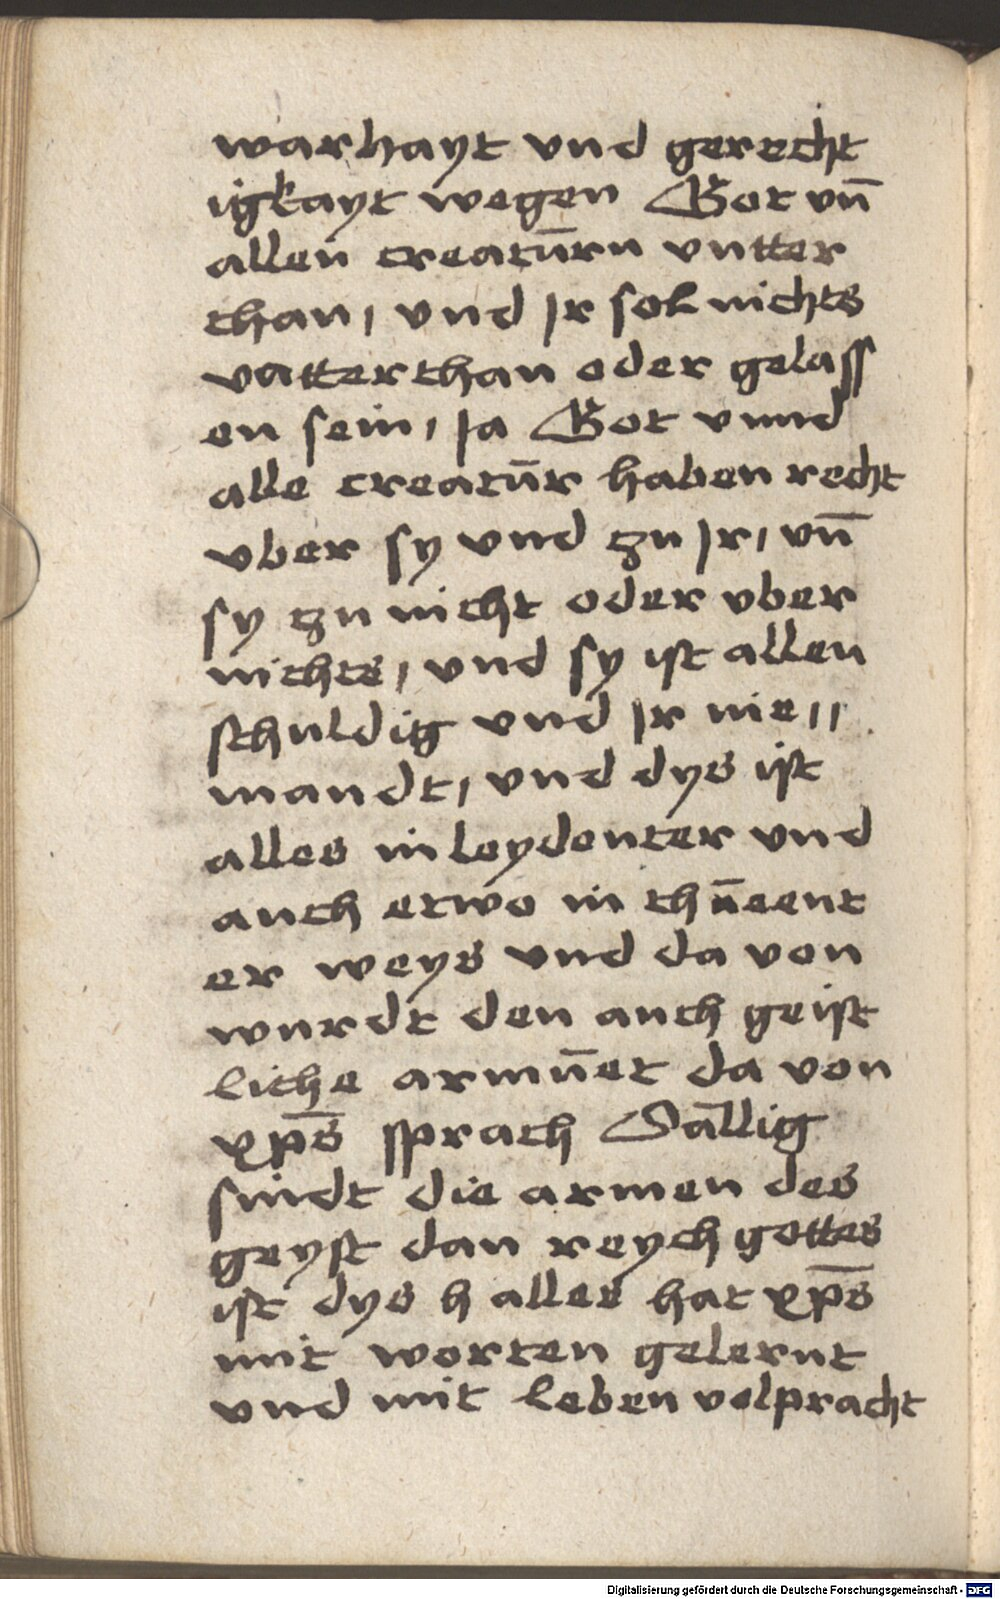 warhayt vnd gerecht
igkayt wegen Got vn̄
allen creatūrn vntter
than, vnd Jr sol nichts
vntterthan oder gelass
en sein, Ja Got vnnd
alle creatūr haben recht
vber sy vnd zu Jr, vn̄
sy zu nicht oder vber
nichts, vnd sy ist allen
schuldig vnd Jr nie,,
mandt, vnd dys ist
alles in leydenter vnd
auch etwo in thūeent
er weys vnd da von
wurdt den auch geist
liche armūet da von
xp̄s sprach Sāllig
sindt die armen des
geyst dan reych gottes
ist dys h alles hat xp̄s
mit worten gelernt
vnd mit leben volpracht
Digitalisierung gefördert durch die Deutsche Forschungsgemeinschaft - DFG